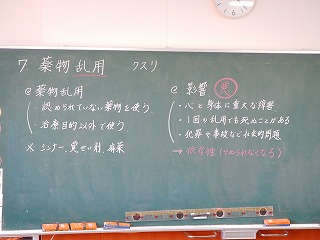 7. 薬物乱用 クスリ
@ 薬物乱用
・認められていない薬物を使う
・治療目的以外で使う
× シンナー、覚せい剤、麻薬
@ 影響 悪
・心と身体に重大な障害
・1回の乱用でも死ぬことがある
・犯罪や事故など社会的問題
→ 依存性(やめられなくなる)